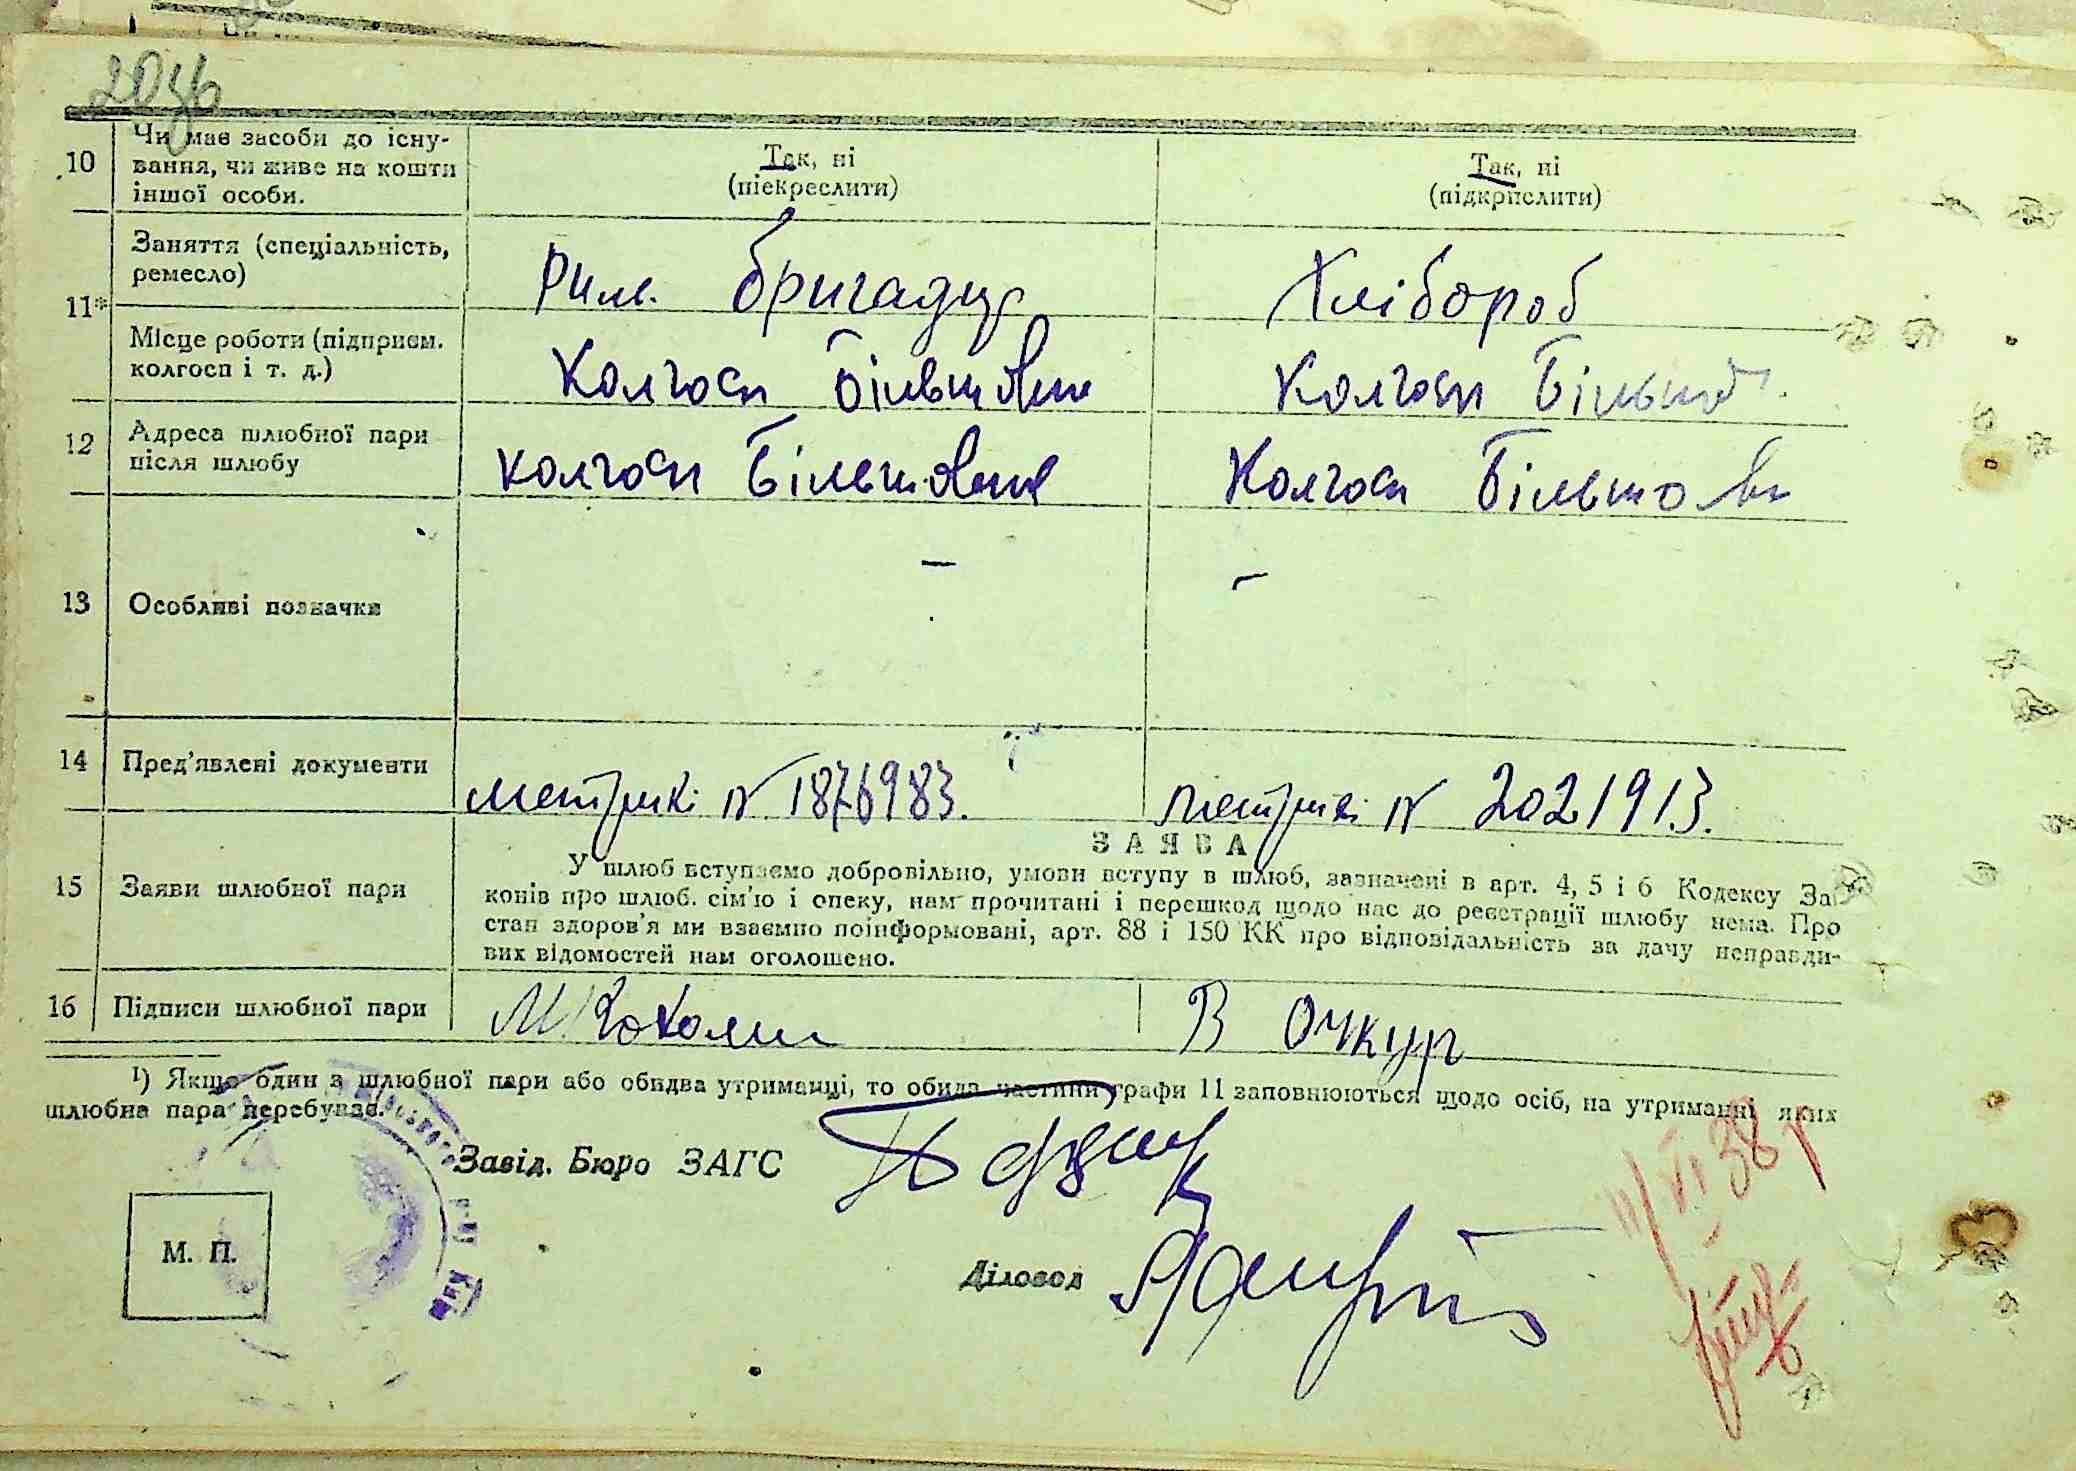 10 Чи має засоби до існу-
вання, чи живе на кошти
іншої особи.
Так, ні
(піекреслити)
Так, ні
(підкрпслити)
11* Заняття (спеціальність,
ремесло)
бригадир
Хлібороб
Місце роботи (підприєм.
колгосп і т. д.)
Колгосп Більшовик
Колгосп
12 Адреса шлюбної пари
після шлюбу
колгосп Більшовик
Колгосп Більшовик
13 Особливі позначки
–
–
14 Пред'явлені документи
метрикі N 1876983.
метрикі N 2021913.
ЗАЯВА
15 Заяви шлюбної пари
У шлюб вступаємо добровільно, умови вступу в шлюб, зазначені в арт. 4, 5 і 6 Кодексу За-
конів про шлюб. сім'ю і опеку, нам прочитані і перешкод щодо нас до реєстрації шлюбу нема. Про
стан здоров'я ми взаємно поінформовані, арт. 88 і 150 КК про відповідальність за дачу неправди-
вих відомостей нам оголошено.
16 Підписи шлюбної пари
В Очкур
¹) Якщо один з шлюбної пари або обидва утриманці, то обида частини графи 11 заповнюються щодо осіб, на утриманні яких
шлюбна пара перебуває.
Завід. Бюро ЗАГС
М. П.
Діловод
VI 38 р